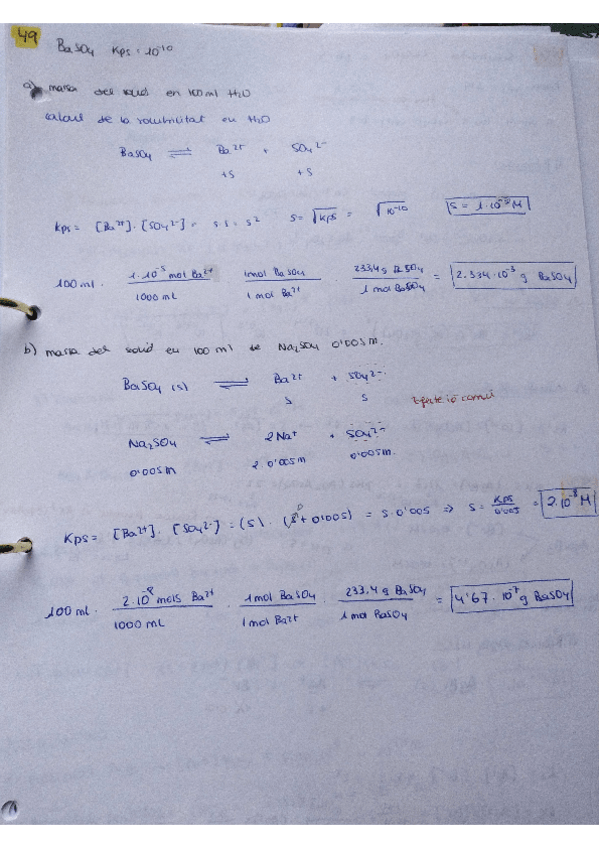 49
BaSO4 Kps: 10^-10
a) massa del sòlid en 100ml H2O
càlcul de la solubilitat en H2O
BaSO4 ⇌ Ba2+ + SO4 2-
+s +s
Kps = [Ba2+] · [SO4 2-] = s·s = s² s = √Kps = √10^-10 s = 1·10^-5 M
100 ml · 1·10^-5 mol Ba2+ / 1000 mL · 1mol BaSO4 / 1 mol Ba2+ · 233,4g BaSO4 / 1 mol BaSO4 = 2.334·10^-3 g BaSO4
b) massa del sòlid en 100 ml de Na2SO4 0'005M.
BaSO4 (s) ⇌ Ba2+ + SO4 2-
s s Efecte ió comú
Na2SO4 ⇌ 2Na+ + SO4 2-
0'005M 2·0'005M 0'005M.
Kps = [Ba2+] · [SO4 2-] = (s) · (s + 0'005) = s·0'005 ⇒ s = Kps / 0'005 = 2·10^-8 M
100 ml · 2·10^-8 mols Ba2+ / 1000 mL · 1 mol BaSO4 / 1 mol Ba2+ · 233,4 g BaSO4 / 1 mol BaSO4 = 4'67·10^-7 g BaSO4